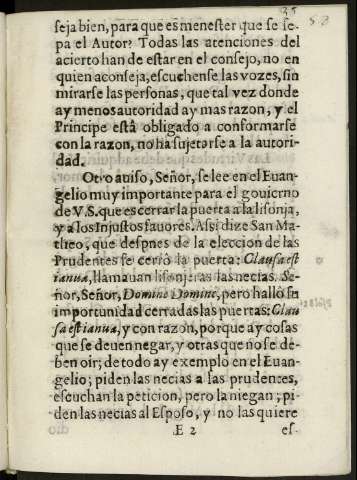 35
seja bien, para que es menester que se se-
pa el Autor? Todas las atenciones del
acierto han de estar en el consejo, no en
quien aconseja, escuchense las vozes, sin
mirarse las personas, que tal vez donde
ay menos autoridad ay mas razon, y el
Principe està obligado a conformarse
con la razon, no ha sujetarse a la autori-
dad.
Otro aviso, Señor, se lee en el Euan-
gelio muy importante para el gouierno
de V.S. que es cerrar la puerta a la lisonja,
y a los Injustos fauores. Assi dize San Ma-
theo, que despues de la eleccion de las
Prudentes se cerrò la puerta: Clausa est
ianua, llamauan lisonjeras las necias. Se-
ñor, Señor, Domine Domine, pero hallò su
importunidad cerradas las puertas: Clau
sa est ianua, y con razon, porque ay cosas
que se deuen negar, y otras que no se de-
ben oir; de todo ay exemplo en el Euan-
gelio; piden las necias a las prudentes,
escuchan la peticion, pero la niegan; pi-
den las necias al Esposo, y no las quiere
E 2
es-